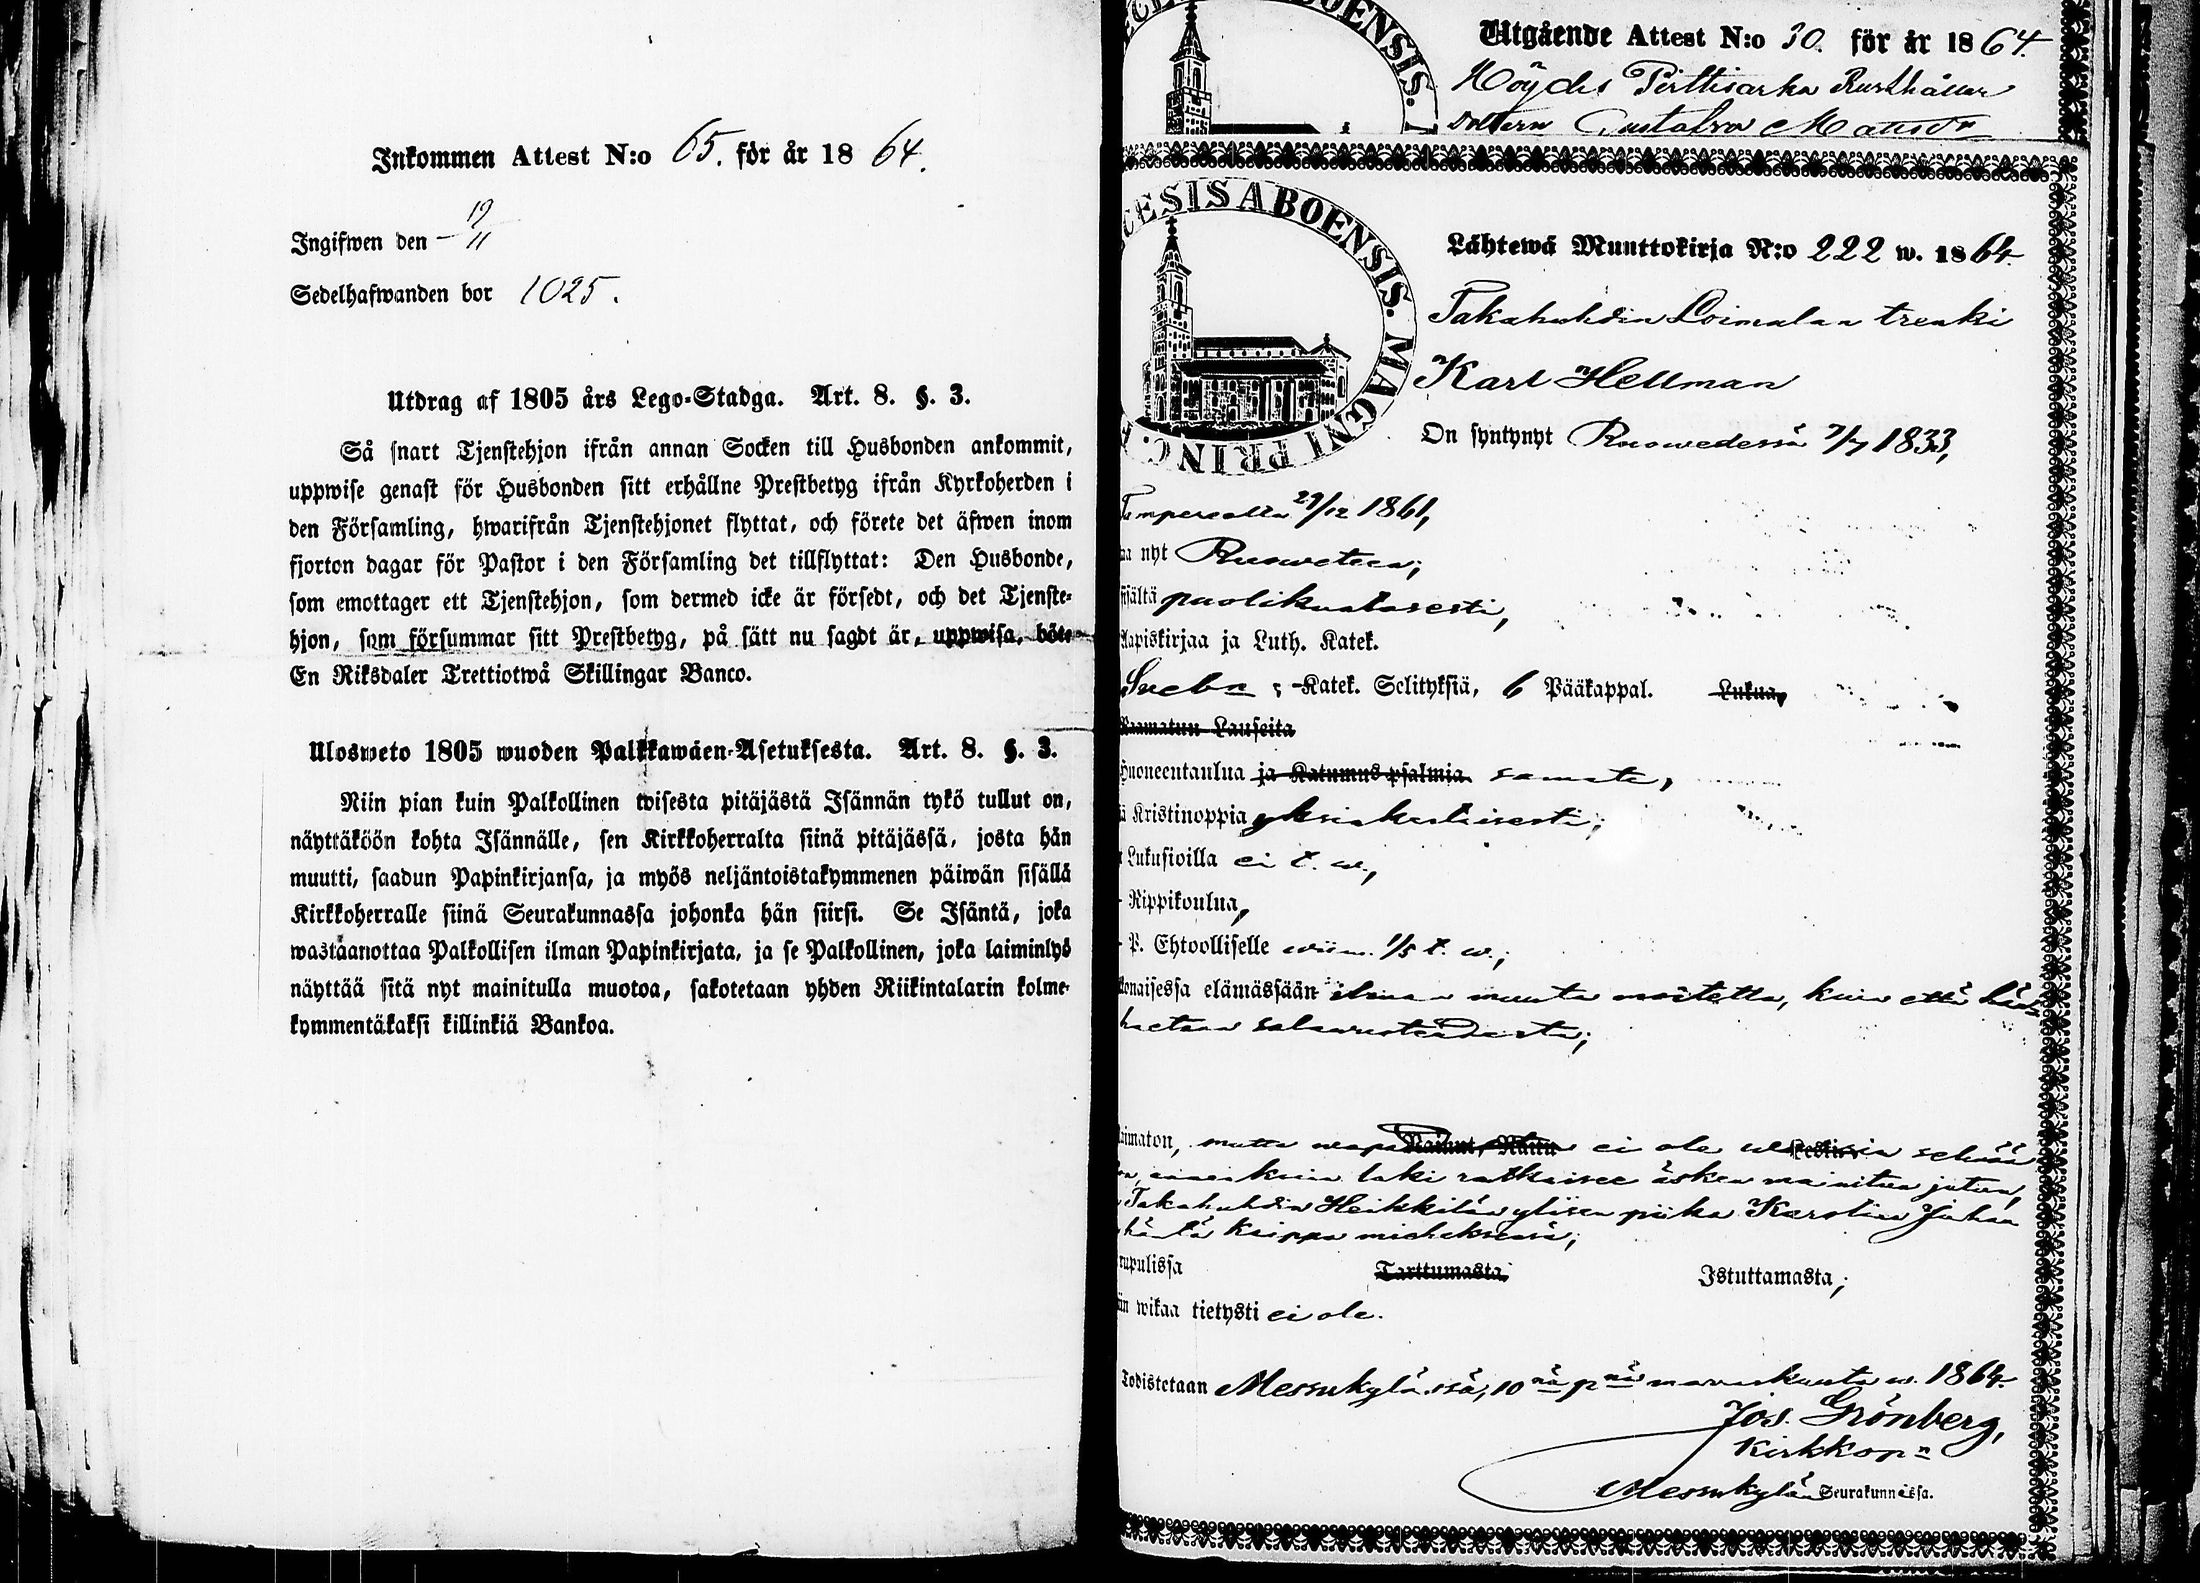 Inkommen Attest N:o 65. för år 18 64.
Ingifwen den 19/11
Sedelhafwanden bor 1025.
Utdrag af 1805 års Lego-Stadga. Art. 8. §. 3.
Så snart Tjenstehjon ifrån annan Socken till Husbonden ankommit,
uppwise genast för Husbonden sitt erhållne Prestbetyg ifrån Kyrkoherden i
den Församling, hwarifrån Tjenstehjonet flyttat, och förete det äfwen inom
fjorton dagar för Pastor i den Församling det tillflyttat: Den Husbonde,
som emottager ett Tjenstehjon, som dermed icke är försedt, och det Tjenste-
hjon, som försummar sitt Prestbetyg, på sätt nu sagdt är, uppwisa, böte
En Riksdaler Trettiotwå Skillingar Banco.
Ulosweto 1805 wuoden Palkkawäen-Asetuksesta. Art. 8. §. 3.
Niin pian kuin Palkollinen toisesta pitäjästä Isännän tykö tullut on,
näyttäköön kohta Isännälle, sen Kirkkoherralta siinä pitäjässä, josta hän
muutti, saadun Papinkirjansa, ja myös neljäntoistakymmenen päiwän sisällä
Kirkkoherralle siinä Seurakunnassa johonka hän siirsi. Se Isäntä, joka
wastaanottaa Palkollisen ilman Papinkirjata, ja se Palkollinen, joka laiminlyö
näyttää sitä nyt mainitulla muotoa, sakotetaan yhden Riikintalarin kolme-
kymmentäkaksi killinkiä Bankoa.
Utgående Attest N:o 30. för år 18 64.
Höydes Pirttisarka Rusthållar
dottern Gustafva Mattsdr
CESIS ABOENSIS. MAGNI PRINC.
Lähtewä Muuttokirja N:o 222 w. 18 64.
Takahuhdin Loimalan trenki
Karl Hellman
On syntynyt Ruowedessä 7/7 1833,
Tampereella 29/12 1861,
aa nyt Ruoweteen;
sisältä puolikuntasesti,
Aapiskirjaa ja Luth. Katek.
Sveb:n ; Katek. Selityksiä, 6 Pääkappal. Lukua,
Raamatun Lauseita
Huoneentaulua ja Katumus psalmia samate,
ä Kristinoppia yksinkertaisesti;
Lukusioilla ei t. w.,
Rippikoulua,
P. Ehtoolliselle wiim. 1/5 t. w.;
onaisessa elämässään ilman muuta moitetta, kuin että häntä
haetaan salawuoteudesta;
aimaton, mutta wapa Nainut, Naitu ei ole Leskin selwää
ennenkuin laki ratkaisee äsken mainitun jutun,
Takahuhdin Heikkilän ylisen piika Karolina Juhan
häntä kaippa miehekseen;
rupulissa Tarttumasta, Istuttamasta;
än wikaa tietysti ei ole.
Todistetaan Messukylässä, 10nä pnä marraskuuta w. 1864.
Jos. Grönberg,
Kirkkop:n
Messukylän Seurakunnassa.